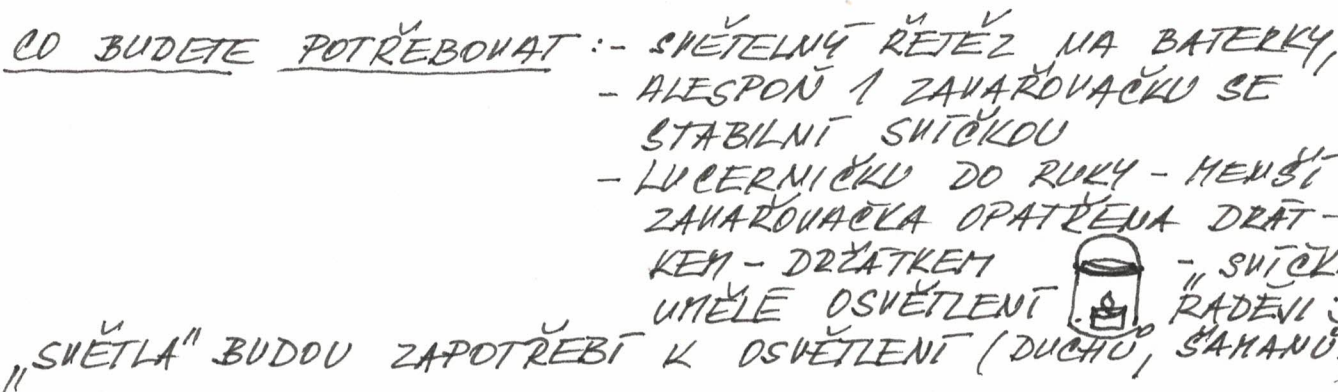 CO BUDETE POTŘEBOVAT :- SVĚTELNÝ ŘETĚZ NA BATERKY,
- ALESPOŇ 1 ZAVAŘOVAČKU SE
STABILNÍ SVÍČKOU
- LUCERNIČKU DO RUKY - MENŠÍ
ZAVAŘOVAČKA OPATŘENA DRÁT-
KEM - DRŽÁTKEM - „SVÍČK
UMĚLÉ OSVĚTLENÍ RADĚJI
„SVĚTLA" BUDOU ZAPOTŘEBÍ K OSVĚTLENÍ (DUCHŮ, ŠAMANŮ